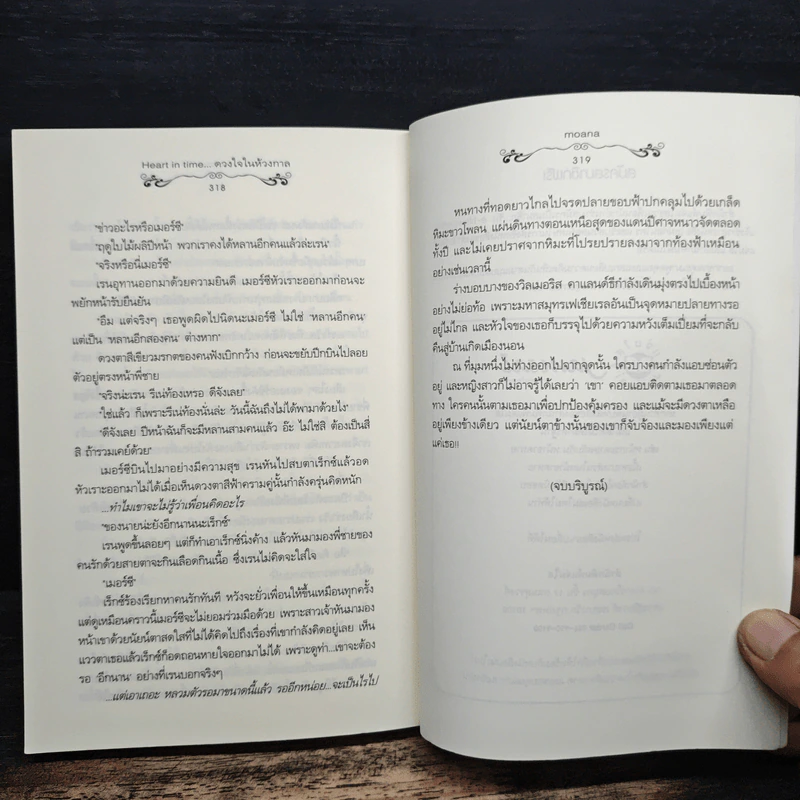 Heart in time... ดวงใจในห้วงกาล
318
"ข่าวอะไรหรือเมอร์ซี"
"ฤดูใบไม้ผลิปีหน้า พวกเราคงได้หลานอีกคนแล้วล่ะเรน"
"จริงหรือนี่เมอร์ซี"
เรนอุทานออกมาด้วยความยินดี เมอร์ซีหัวเราะออกมาก่อนจะ
พยักหน้ารับยืนยัน
"อืม แต่จริงๆ เธอพูดผิดไปนิดนะเมอร์ซี ไม่ใช่ 'หลานอีกคน'
แต่เป็น 'หลานอีกสองคน' ต่างหาก"
ดวงตาสีเขียวมรกตของคนฟังเบิกกว้าง ก่อนจะขยับปีกบินไปลอย
ตัวอยู่ตรงหน้าพี่ชาย
"จริงน่ะเรน รีเน่ท้องเหรอ ดีจังเลย"
"ใช่แล้ว ก็เพราะรีเน่ท้องนั่นล่ะ วันนี้ฉันถึงไม่ได้พามาด้วยไง"
"ดีจังเลย ปีหน้าฉันก็จะมีหลานสามคนแล้ว อ๊ะ ไม่ใช่สิ ต้องเป็นสี่
สิ ถ้ารวมเคย์ด้วย"
เมอร์ซีบินไปมาอย่างมีความสุข เรนหันไปสบตาเร็กซ์แล้วอด
หัวเราะออกมาไม่ได้เมื่อเห็นดวงตาสีฟ้าครามคู่นั้นกำลังครุ่นคิดหนัก
...ทำไมเขาจะไม่รู้ว่าเพื่อนคิดอะไร
"ของนายน่ะยังอีกนานนะเร็กซ์"
เรนพูดขึ้นลอยๆ แต่ก็ทำเอาเร็กซ์นิ่งค้าง แล้วหันมามองพี่ชายของ
คนรักด้วยสายตาจะกินเลือดกินเนื้อ ซึ่งเรนไม่คิดจะใส่ใจ
"เมอร์ซี"
เร็กซ์ร้องเรียกหาคนรักทันที หวังจะยั่วเพื่อนให้ขึ้นเหมือนทุกครั้ง
แต่ดูเหมือนคราวนี้เมอร์ซีจะไม่ยอมร่วมมือด้วย เพราะสาวเจ้าหันมามอง
หน้าเขาด้วยนัยน์ตาสดใสที่ไม่ได้คิดไปถึงเรื่องที่เขากำลังคิดอยู่เลย เห็น
แววตาเธอแล้วเร็กซ์ก็อดถอนหายใจออกมาไม่ได้ เพราะดูท่า...เขาจะต้อง
รอ 'อีกนาน' อย่างที่เรนบอกจริงๆ
...แต่เอาเถอะ หลวมตัวรอมาขนาดนี้แล้ว รออีกหน่อย...จะเป็นไรไป
moana
319
หนทางที่ทอดยาวไกลไปจรดปลายขอบฟ้าปกคลุมไปด้วยเกล็ด
หิมะขาวโพลน แผ่นดินทางตอนเหนือสุดของแดนปีศาจหนาวจัดตลอด
ทั้งปี และไม่เคยปราศจากหิมะที่โปรยปรายลงมาจากท้องฟ้าเหมือน
อย่างเช่นเวลานี้
ร่างบอบบางของวิลเมอริส คาแลนด์ธีกำลังเดินมุ่งตรงไปเบื้องหน้า
อย่างไม่ย่อท้อ เพราะมหาสมุทรเฟเชียเรลอันเป็นจุดหมายปลายทางรอ
อยู่ไม่ไกล และหัวใจของเธอก็บรรจุไปด้วยความหวังเต็มเปี่ยมที่จะกลับ
คืนสู่บ้านเกิดเมืองนอน
ณ ที่มุมหนึ่งไม่ห่างออกไปจากจุดนั้น ใครบางคนกำลังแอบซ่อนตัว
อยู่ และหญิงสาวก็ไม่อาจรู้ได้เลยว่า 'เขา' คอยแอบติดตามเธอมาตลอด
ทาง ใครคนนั้นตามเธอมาเพื่อปกป้องคุ้มครอง และแม้จะมีดวงตาเหลือ
อยู่เพียงข้างเดียว แต่นัยน์ตาข้างนั้นของเขาก็จับจ้องและมองเพียงแต่
แค่เธอ!!
(จบบริบูรณ์)